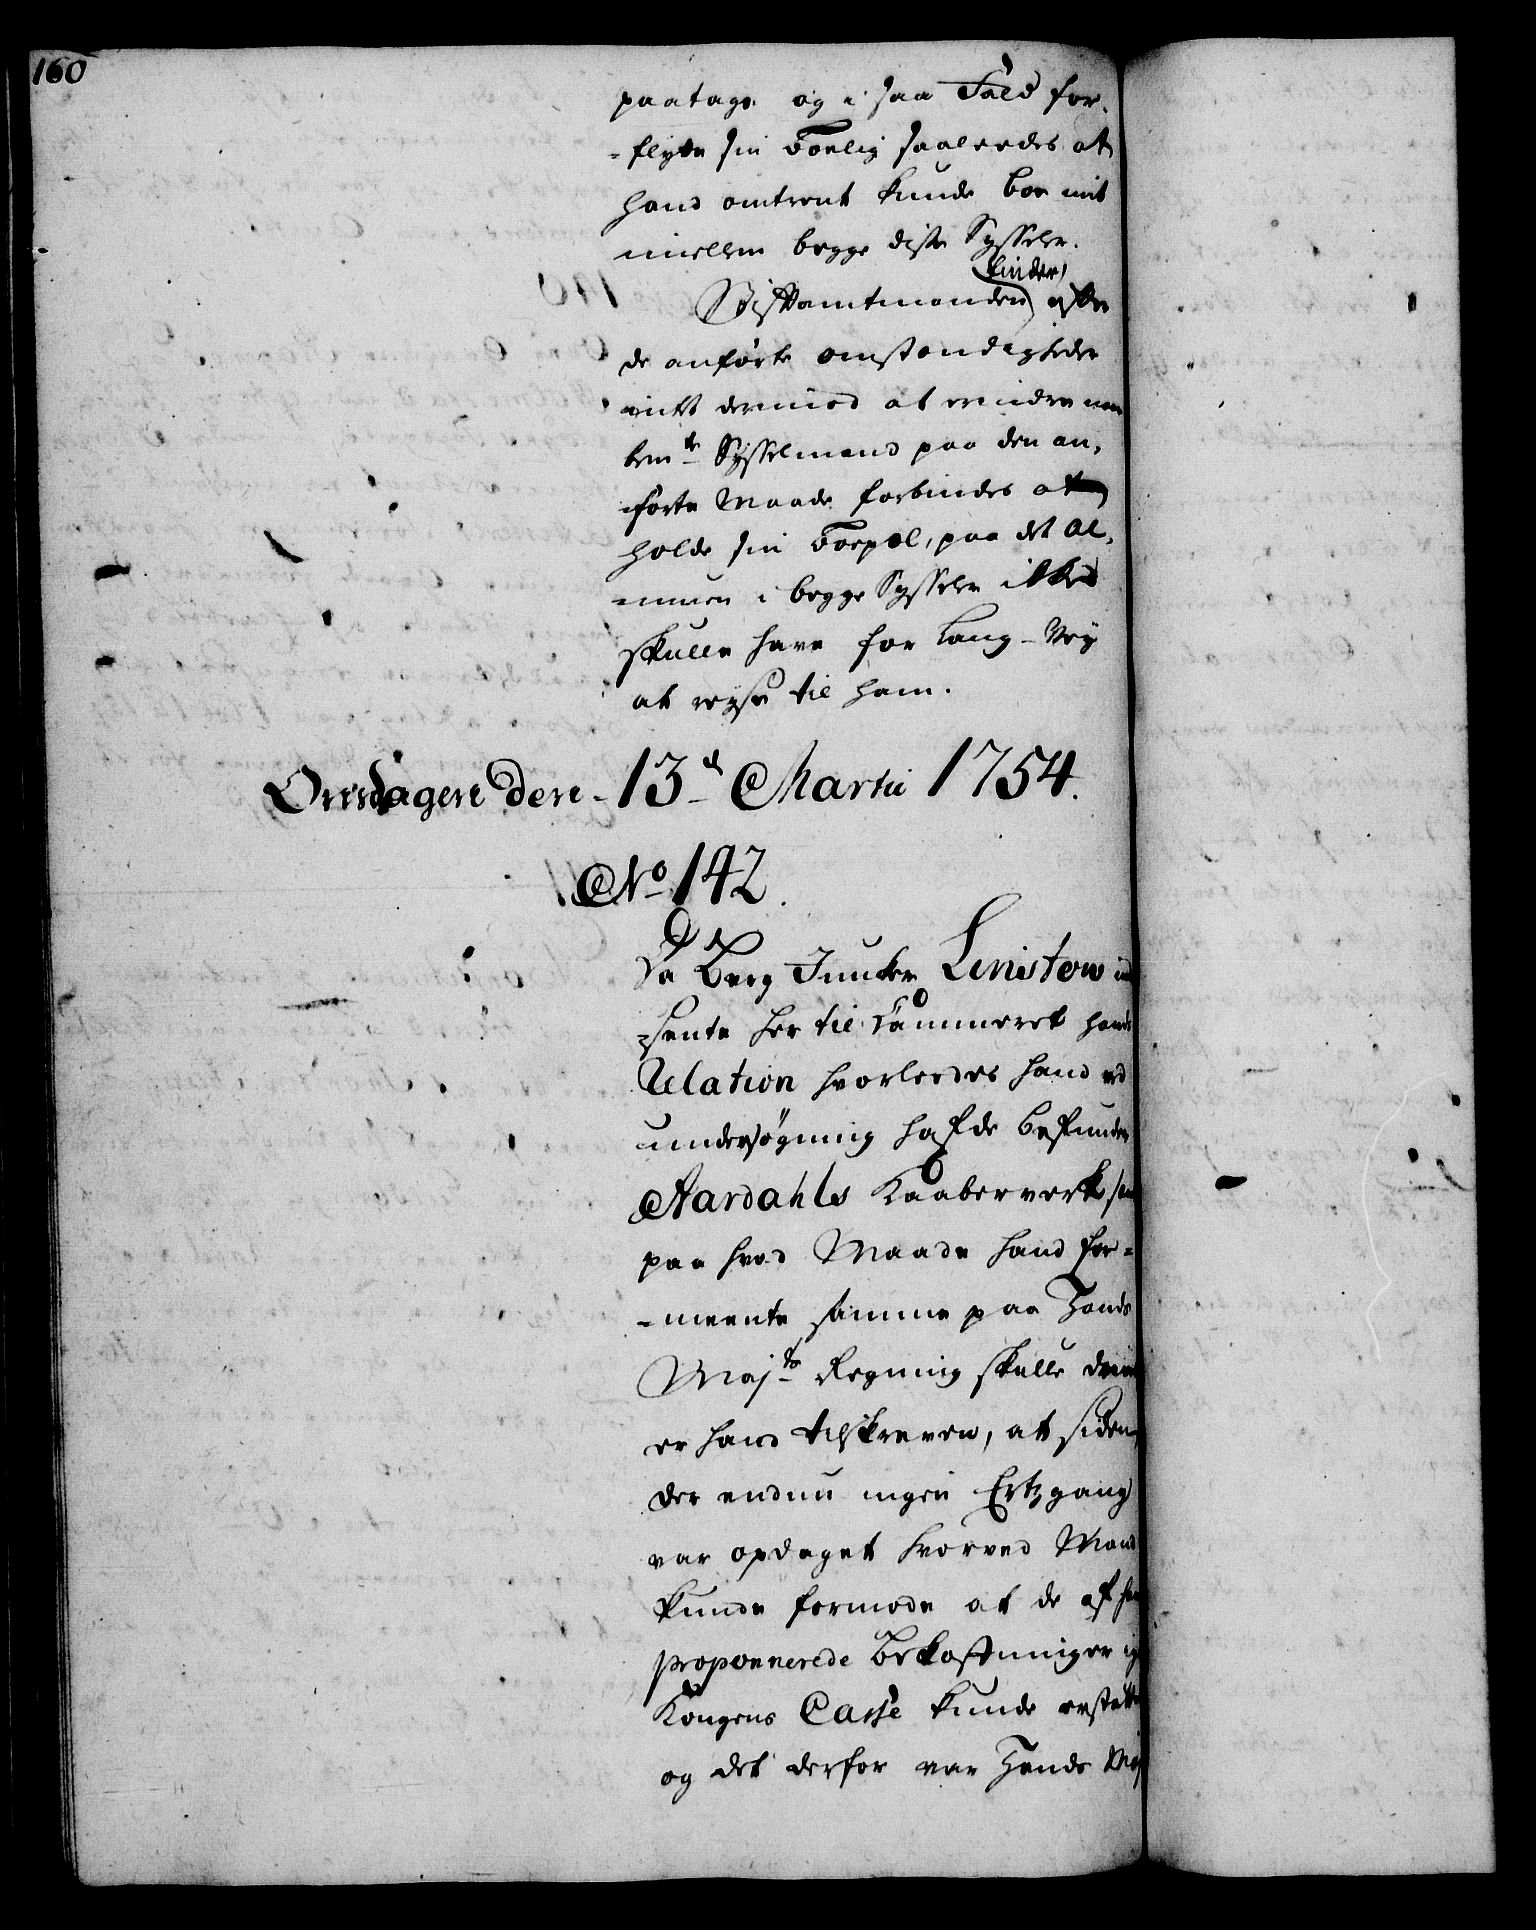 160
paatage og i saa Fald for-
-flytte sin Boelig saaledes at
hand omtrent kunde boe mit
imellem begge disse Sysseler.
finder
Stiftamtmanden efter
de anførte omstændigheder
intet derimod at erindre men
bem.te Sysselmand paa den an-
førte Maade forbindes at
holde sin Boepæl, paa det Al-
muen i begge Sysseler ikke
skulle have for lang Vey
at reyse til ham.
Onsdagen den 13.d Martii 1754.
No 142.
Da Berg Juncker Linstow ind
-sente her til Cammeret hands
Relation hvorledes hand ved
undersøgning hafde befunden
Aardahls Kaaberverk samt
paa hvad Maade hand for-
-meente samme paa Hands
Maj.ts Regning skulle drives
er hand tilskreven, at siden
der endnu ingen Ertzgang
var opdaget hvorved Mand
kunde formode at de af ham
proponnerede Bekostninger
Kongens Casse kunde erstattes
og det derfor var Hands Maj